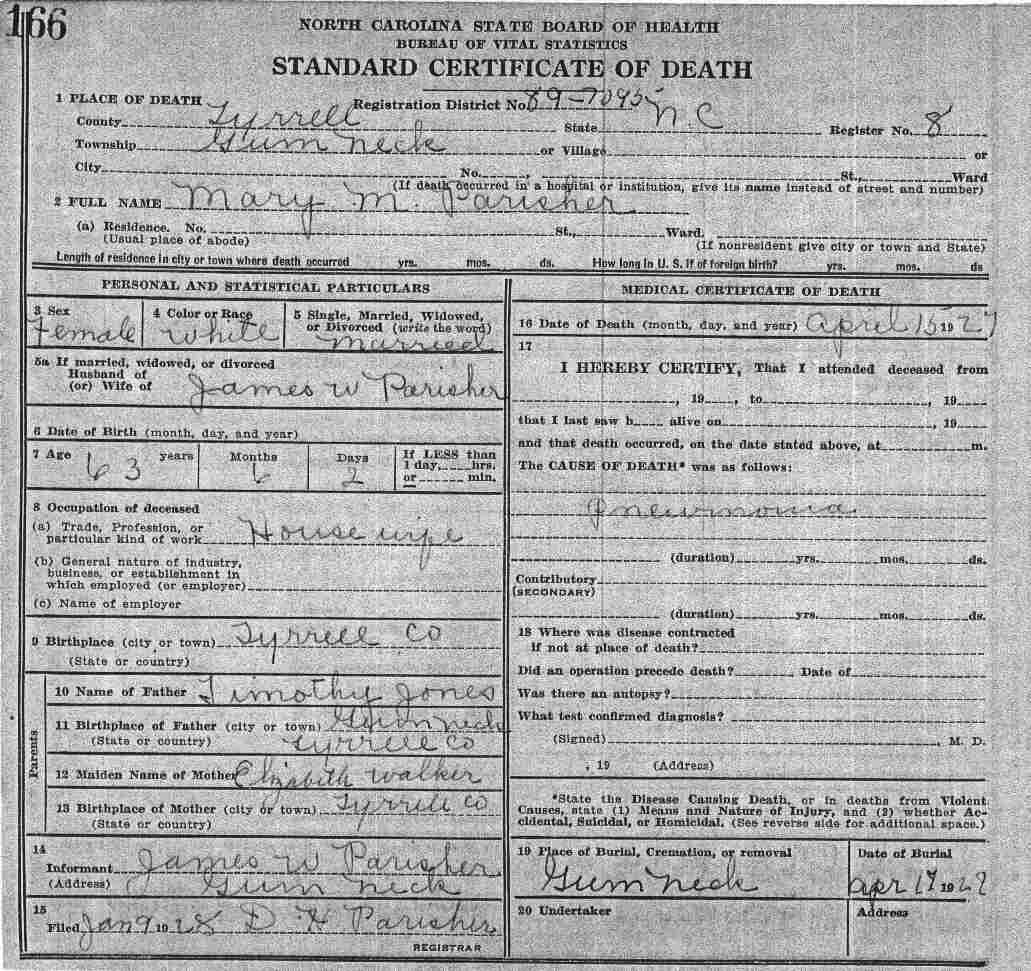 166
NORTH CAROLINA STATE BOARD OF HEALTH
BUREAU OF VITAL STATISTICS
STANDARD CERTIFICATE OF DEATH
1 PLACE OF DEATH Registration District No. 89-7095
County Tyrrell State N.C Register No. 8
Township Gum Neck or Village or
City No. , St., Ward
(If death occurred in a hospital or institution, give its name instead of street and number)
2 FULL NAME Mary M. Parisher
(a) Residence. No. St., Ward.
(Usual place of abode) (If nonresident give city or town and State)
Length of residence in city or town where death occurred yrs. mos. ds. How long in U. S. if of foreign birth? yrs. mos. ds
PERSONAL AND STATISTICAL PARTICULARS
3 Sex
Female
4 Color or Race
White
5 Single, Married, Widowed,
or Divorced (write the word)
Married
5a If married, widowed, or divorced
Husband of
(or) Wife of James W Parisher
6 Date of Birth (month, day, and year)
7 Age 63 years Months 6 Days 2 If LESS than
1 day, hrs.
or min.
8 Occupation of deceased
(a) Trade, Profession, or
particular kind of work House wife
(b) General nature of industry,
business, or establishment in
which employed (or employer)
(c) Name of employer
9 Birthplace (city or town) Tyrrell Co
(State or country)
Parents
10 Name of Father Timothy Jones
11 Birthplace of Father (city or town) Gum Neck
(State or country) Tyrrell Co
12 Maiden Name of Mother Elizabith Walker
13 Birthplace of Mother (city or town) Tyrrell Co
(State or country)
14
Informant James W Parisher
(Address) Gum Neck
15
Filed Jan 9 1928 D H Parisher
REGISTRAR
MEDICAL CERTIFICATE OF DEATH
16 Date of Death (month, day, and year) April 15 1927
17
I HEREBY CERTIFY, That I attended deceased from
, 19 , to , 19
that I last saw h alive on , 19
and that death occurred, on the date stated above, at m.
The CAUSE OF DEATH* was as follows:
Pneumonia
(duration) yrs. mos. ds.
Contributory
(SECONDARY)
(duration) yrs. mos. ds.
18 Where was disease contracted
if not at place of death?
Did an operation precede death? Date of
Was there an autopsy?
What test confirmed diagnosis?
(Signed) , M. D.
, 19 (Address)
*State the Disease Causing Death, or in deaths from Violent
Causes, state (1) Means and Nature of Injury, and (2) whether Ac-
cidental, Suicidal, or Homicidal. (See reverse side for additional space.)
19 Place of Burial, Cremation, or removal
Gum Neck
Date of Burial
Apr 17 1927
20 Undertaker
Address